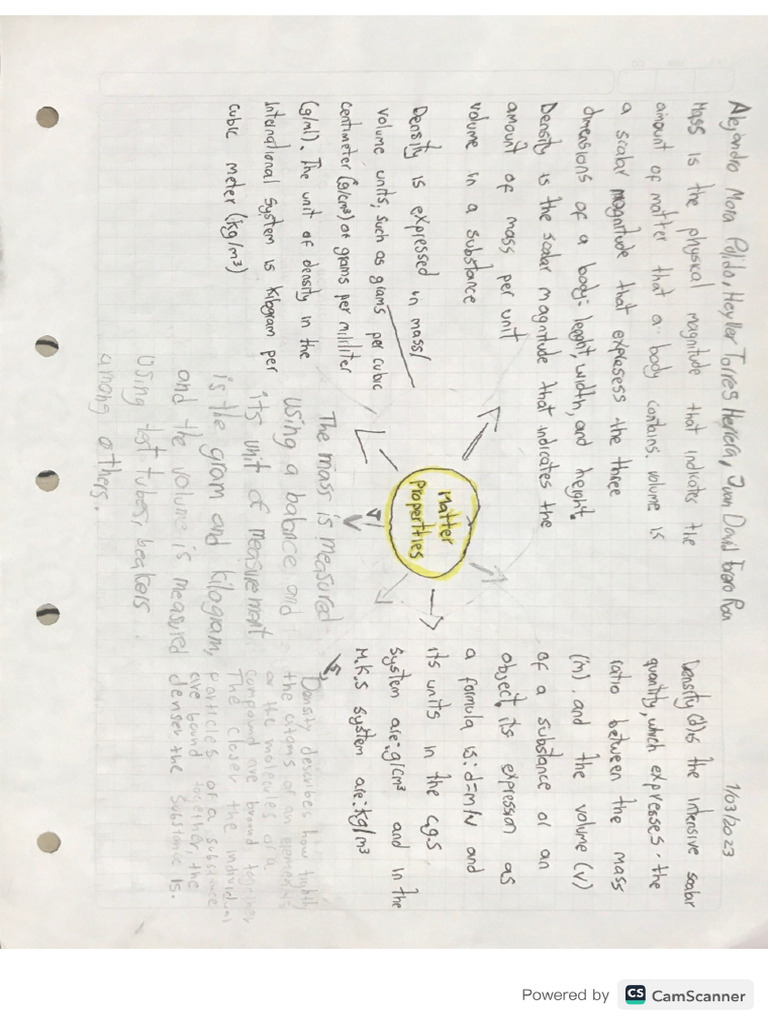 Alejandro Mora Pulido, Heyller Torres Herrera, Juan David Forero Roa
1/03/2023
Mass is the physical magnitude that indicates the
amount of matter that a body contains. volume is
a scalar magnitude that expresess the three
dimensions of a body: lenght, width, and height.
Density is the scalar magnitude that indicates the
amount of mass per unit
volume in a substance
Density is expressed in mass/
volume units, such as grams per cubic
centimeter (g/cm³) or grams per mililiter
(g/ml). The unit of density in the
International System is kilogram per
cubic meter (kg/m³)
Matter
properties
Density (d) is the intensive scalar
quantity, which expresses the
ratio between the mass
(m) and the volume (v)
of a substance or an
object, its expression as
a formula is: d=m/v and
its units in the c.g.s
system are: g/cm³ and in the
M.K.S system are: kg/m³
The mass is measured
using a balance and
its unit of measurement
is the gram and kilogram,
and the volume is measured
Using test tubes, beakers
among others.
Density describes how tightly
the atoms of an element
or the molecules of a
compound are bound together
The closer the individual
particles of a substance
are bound together the
denser the substance is.
CS CamScanner
Powered by